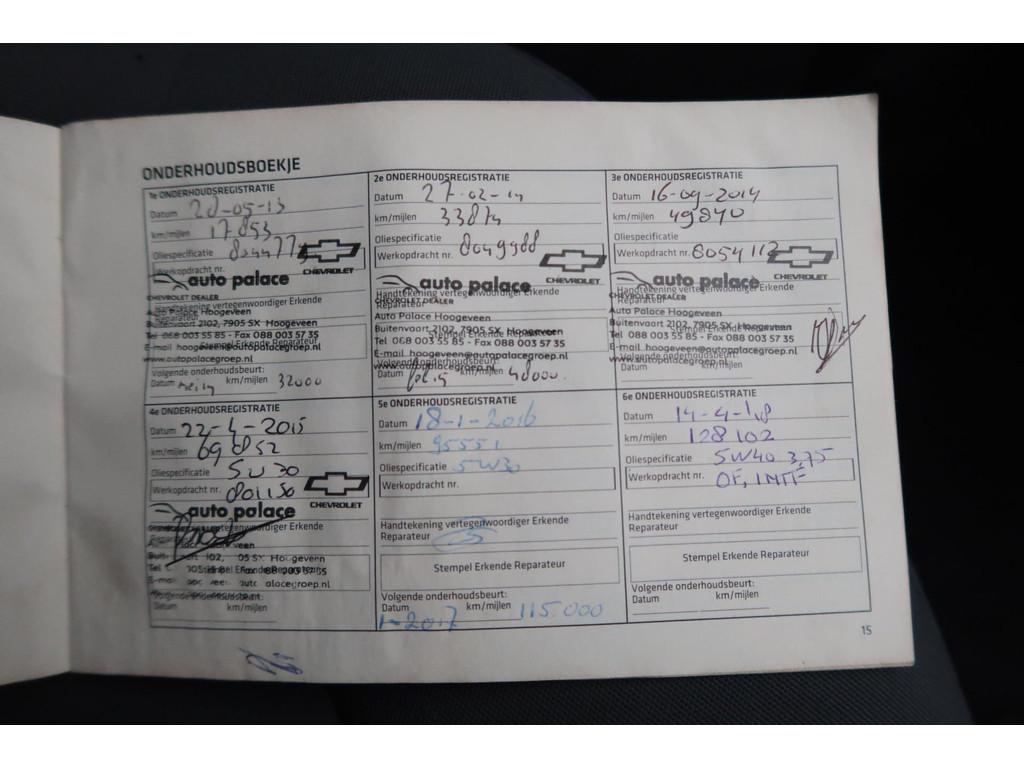 ONDERHOUDSBOEKJE
1e ONDERHOUDSREGISTRATIE
Datum 28-05-13
km/mijlen 17853
Oliespecificatie
Werkopdracht nr.
CHEVROLET
auto palace
CHEVROLET DEALER
Handtekening vertegenwoordiger Erkende
Reparateur
Auto Palace Hoogeveen
Buitenvaart 2102, 7905 SX Hoogeveen
Tel 088 003 55 85 - Fax 088 003 57 35
Stempel Erkende Reparateur
E-mail hoogeveen@autopalacegroep.nl
www.autopalacegroep.nl
Volgende onderhoudsbeurt:
Datum km/mijlen 32000
2e ONDERHOUDSREGISTRATIE
Datum 27-02-14
km/mijlen 33874
Oliespecificatie
Werkopdracht nr. 8049988
CHEVROLET
auto palace
Handtekening vertegenwoordiger Erkende
CHEVROLET DEALER
Reparateur
Auto Palace Hoogeveen
Stempel Erkende Reparateur
Buitenvaart 2102, 7905 SX Hoogeveen
Tel 088 003 55 85 - Fax 088 003 57 35
E-mail hoogeveen@autopalacegroep.nl
Volgende onderhoudsbeurt:
www.autopalacegroep.nl
Datum km/mijlen 48000.
3e ONDERHOUDSREGISTRATIE
Datum 16-09-2014
km/mijlen 49840
Oliespecificatie
Werkopdracht nr. 8054112
CHEVROLET
auto palace
Handtekening vertegenwoordiger Erkende
CHEVROLET DEALER
Reparateur
Auto Palace Hoogeveen
Buitenvaart 2102, 7905 SX Hoogeveen
Stempel Erkende Reparateur
Tel 088 003 55 85 - Fax 088 003 57 35
E-mail hoogeveen@autopalacegroep.nl
Volgende onderhoudsbeurt:
www.autopalacegroep.nl
Datum km/mijlen
4e ONDERHOUDSREGISTRATIE
Datum 22-4-2015
km/mijlen 69852
Oliespecificatie 5W30
Werkopdracht nr. 801150
CHEVROLET
auto palace
Erkende
Hoogeveen
E-mail
Volgende onderhoudsbeurt:
Datum km/mijlen
5e ONDERHOUDSREGISTRATIE
Datum 18-1-2016
km/mijlen 95551
Oliespecificatie 5W30
Werkopdracht nr.
Handtekening vertegenwoordiger Erkende
Reparateur
Stempel Erkende Reparateur
Volgende onderhoudsbeurt:
Datum km/mijlen 115.000
1-2017
6e ONDERHOUDSREGISTRATIE
Datum 14-4-18
km/mijlen 128102
Oliespecificatie 5W40 3,75
Werkopdracht nr. OF,
Handtekening vertegenwoordiger Erkende
Reparateur
Stempel Erkende Reparateur
Volgende onderhoudsbeurt:
Datum km/mijlen
15